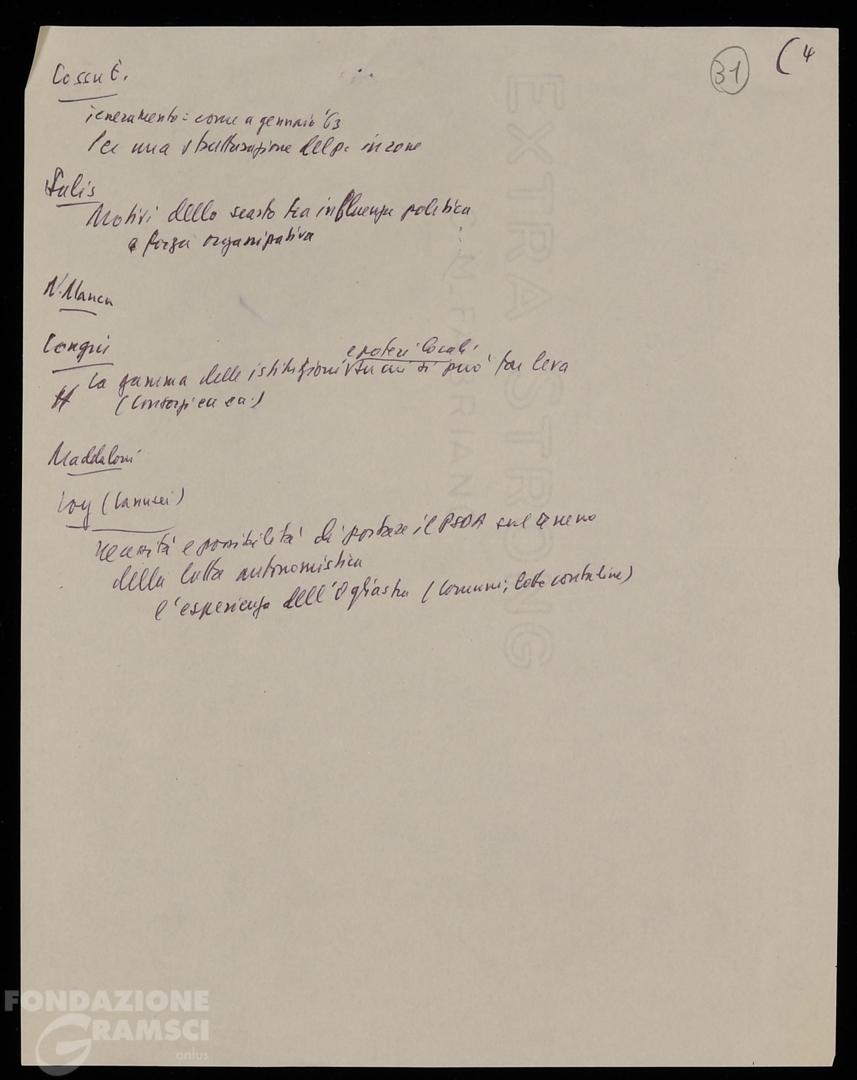 31 (4
Cossu E.
Tesseramento: come a gennaio '63
Per una strutturazione del p. in zone
Sulis
Motivi dello scarto tra influenza politica
e forza organizzativa
N. Manca
Congiu
e poteri locali
La gamma delle istituzioni su cui si può far leva
(Consorzi ecc ecc.)
Maddaloni
Loy (Lanusei)
necessità e possibilità di portare il PSDA sul terreno
della lotta autonomistica
l'esperienza dell'Ogliastra (Comuni, lotte contadine)
EXTRA STRONG
FONDAZIONE
GRAMSCI
onlus